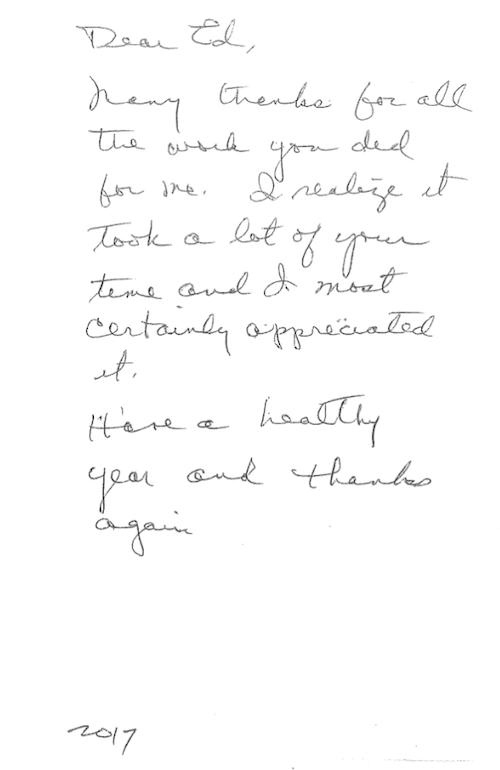 Dear Ed,
Many thanks for all
the work you did
for me. I realize it
took a lot of your
time and I most
certainly appreciated
it.
Have a healthy
year and thanks
again
2017